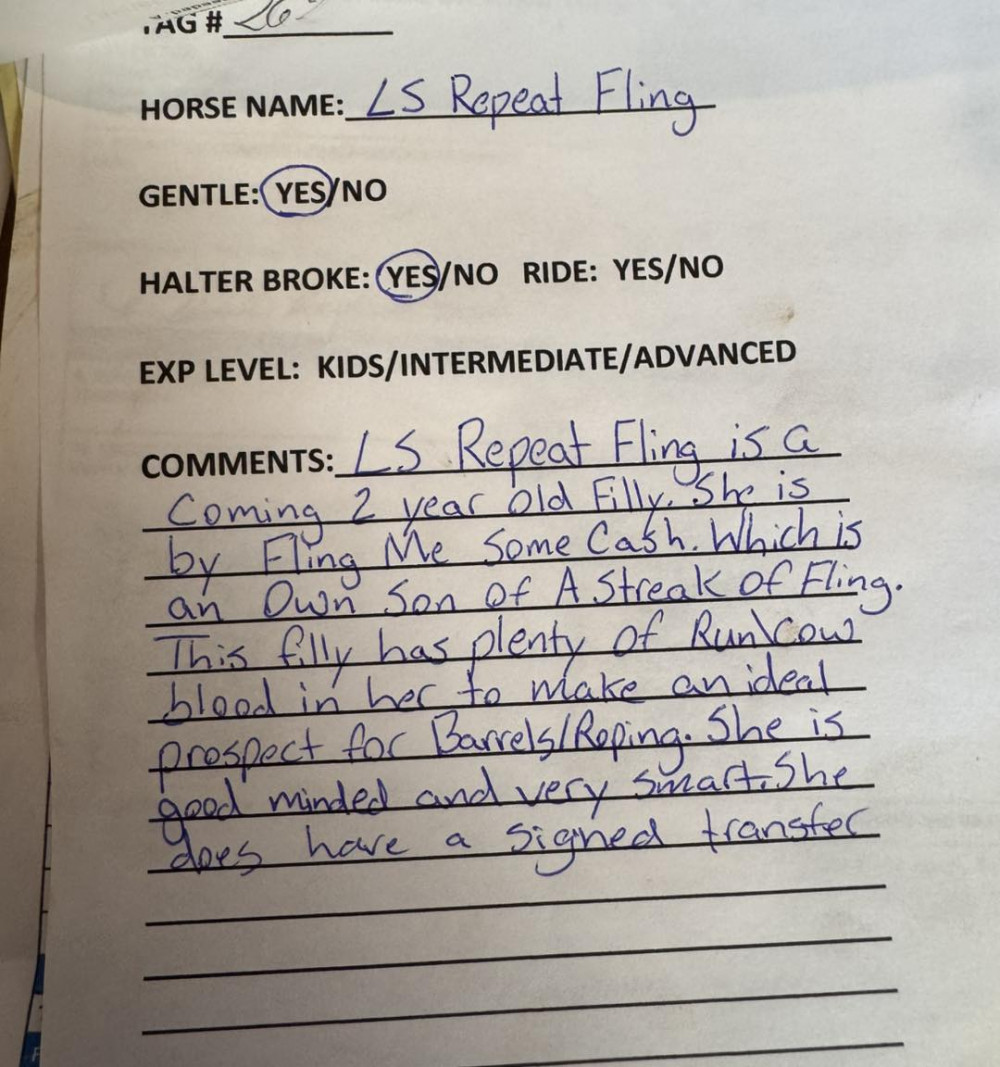 TAG #
HORSE NAME: LS Repeat Fling
GENTLE: YES/NO
HALTER BROKE: YES/NO RIDE: YES/NO
EXP LEVEL: KIDS/INTERMEDIATE/ADVANCED
COMMENTS: LS Repeat Fling is a
Coming 2 year old Filly. She is
by Fling Me Some Cash. Which is
an Own Son of A Streak of Fling.
This filly has plenty of Run\Cow
blood in her to make an ideal
prospect for Barrels/Roping. She is
good minded and very smart. She
does have a signed transfer